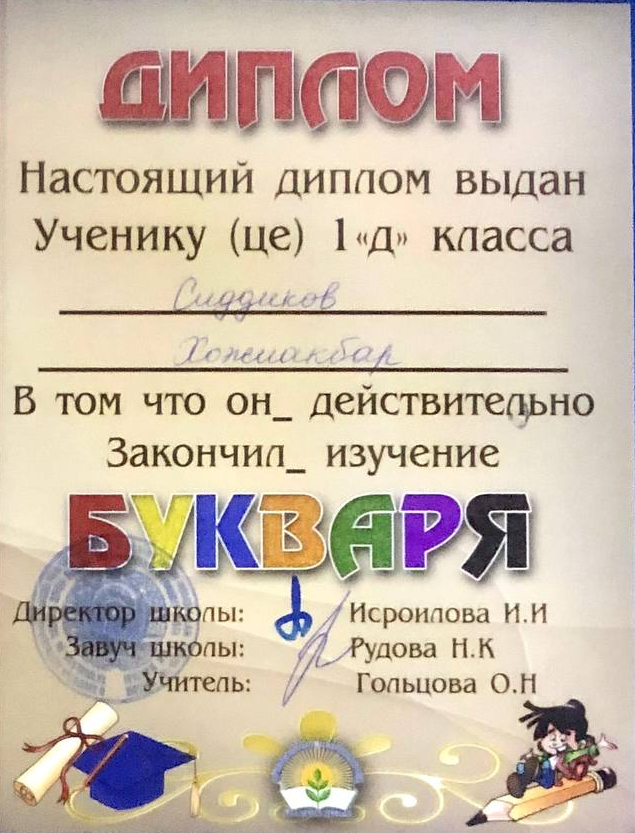 ДИПЛОМ
Настоящий диплом выдан
Ученику (це) 1 «д» класса
Сиддиков
Хожиакбар
В том что он_ действительно
Закончил_ изучение
БУКВАРЯ
Директор школы: Исроилова И.И
Завуч школы: Рудова Н.К
Учитель: Гольцова О.Н